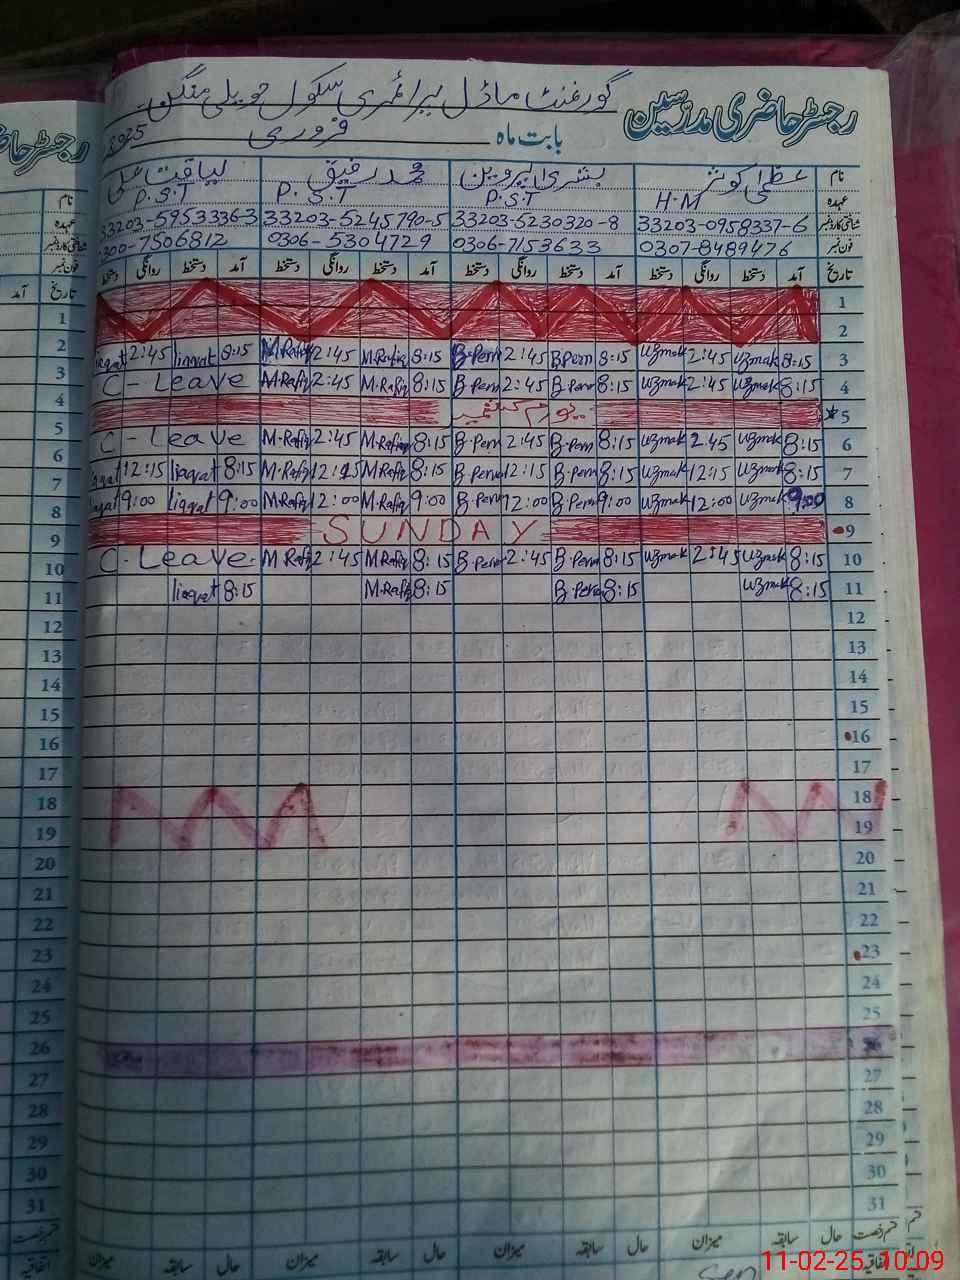 رجسٹر حاضری مدرسین گورنمنٹ ماڈل پرائمری سکول حویلی منگن
بابت ماہ فروری 2025
نام عظمٰی کوثر بشریٰ پروین محمد رفیق لیاقت علی
عہدہ H.M P.S.T P.S.T P.S.T
شناختی کارڈ نمبر 33203-0958337-6 33203-5230320-8 33203-5245790-5 33203-5953336-3
فون نمبر 0307-8489476 0306-7153633 0306-5304729 0300-7506812
تاریخ آمد دستخط روانگی دستخط آمد دستخط روانگی دستخط آمد دستخط روانگی دستخط آمد دستخط روانگی دستخط
1
2
3 8:15 uzmak 2:45 uzmak 8:15 B.Perv 2:45 B.Perv 8:15 M.Rafiq 2:45 M.Rafiq 8:15 liaqat 2:45 liaqat
4 8:15 uzmak 2:45 uzmak 8:15 B.Perv 2:45 B.Perv 8:15 M.Rafiq 2:45 M.Rafiq C-Leave
5 یوم کشمیر
6 8:15 uzmak 2:45 uzmak 8:15 B.Perv 2:45 B.Perv 8:15 M.Rafiq 2:45 M.Rafiq C-Leave
7 8:15 uzmak 12:15 uzmak 8:15 B.Perv 12:15 B.Perv 8:15 M.Rafiq 12:15 M.Rafiq 8:15 liaqat 12:15
8 9:00 uzmak 12:00 uzmak 9:00 B.Perv 12:00 B.Perv 9:00 M.Rafiq 12:00 M.Rafiq 9:00 liaqat 9:00
9 SUNDAY
10 8:15 uzmak 2:45 uzmak 8:15 B.Perv 2:45 B.Perv 8:15 M.Rafiq 2:45 M.Rafiq C-Leave
11 8:15 uzmak 8:15 B.Perv 8:15 M.Rafiq 8:15 liaqat
12
13
14
15
16
17
18
19
20
21
22
23
24
25
26
27
28
29
30
31
قسم رخصت حال سابقہ میزان حال سابقہ میزان حال سابقہ میزان حال سابقہ میزان
اتفاقیہ
11-02-25 10:09